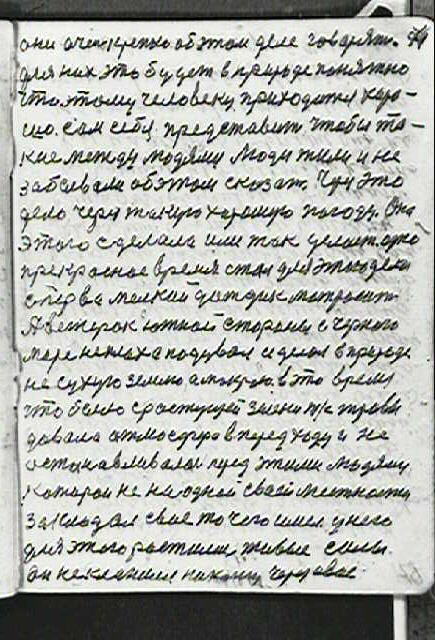 они очен крепко об этом деле говорят.
для них это будет в природе понятно
что этому человеку приходится хоро-
шо сам себя представит. чтобы та-
кие между людями люди жили и не
забывали об этом сказат. Чуя это
дело через такую хорошую погоду. Она
этого сделала или так делает одно
прекрасное время стои для этого дела
сперва мелкий дождик моросит
А ветерок южной стороны с черного
море неплоха подувал и делал в природе
не сухую землю а мокрою. в это время
что было с растущей земни
давала атмосфера вперед ходу и не
останавливалас перед этими людями
Которои не на одной своей местности
закладал свое то чего имел у него
для этого растили живые силы
он не кланился никому